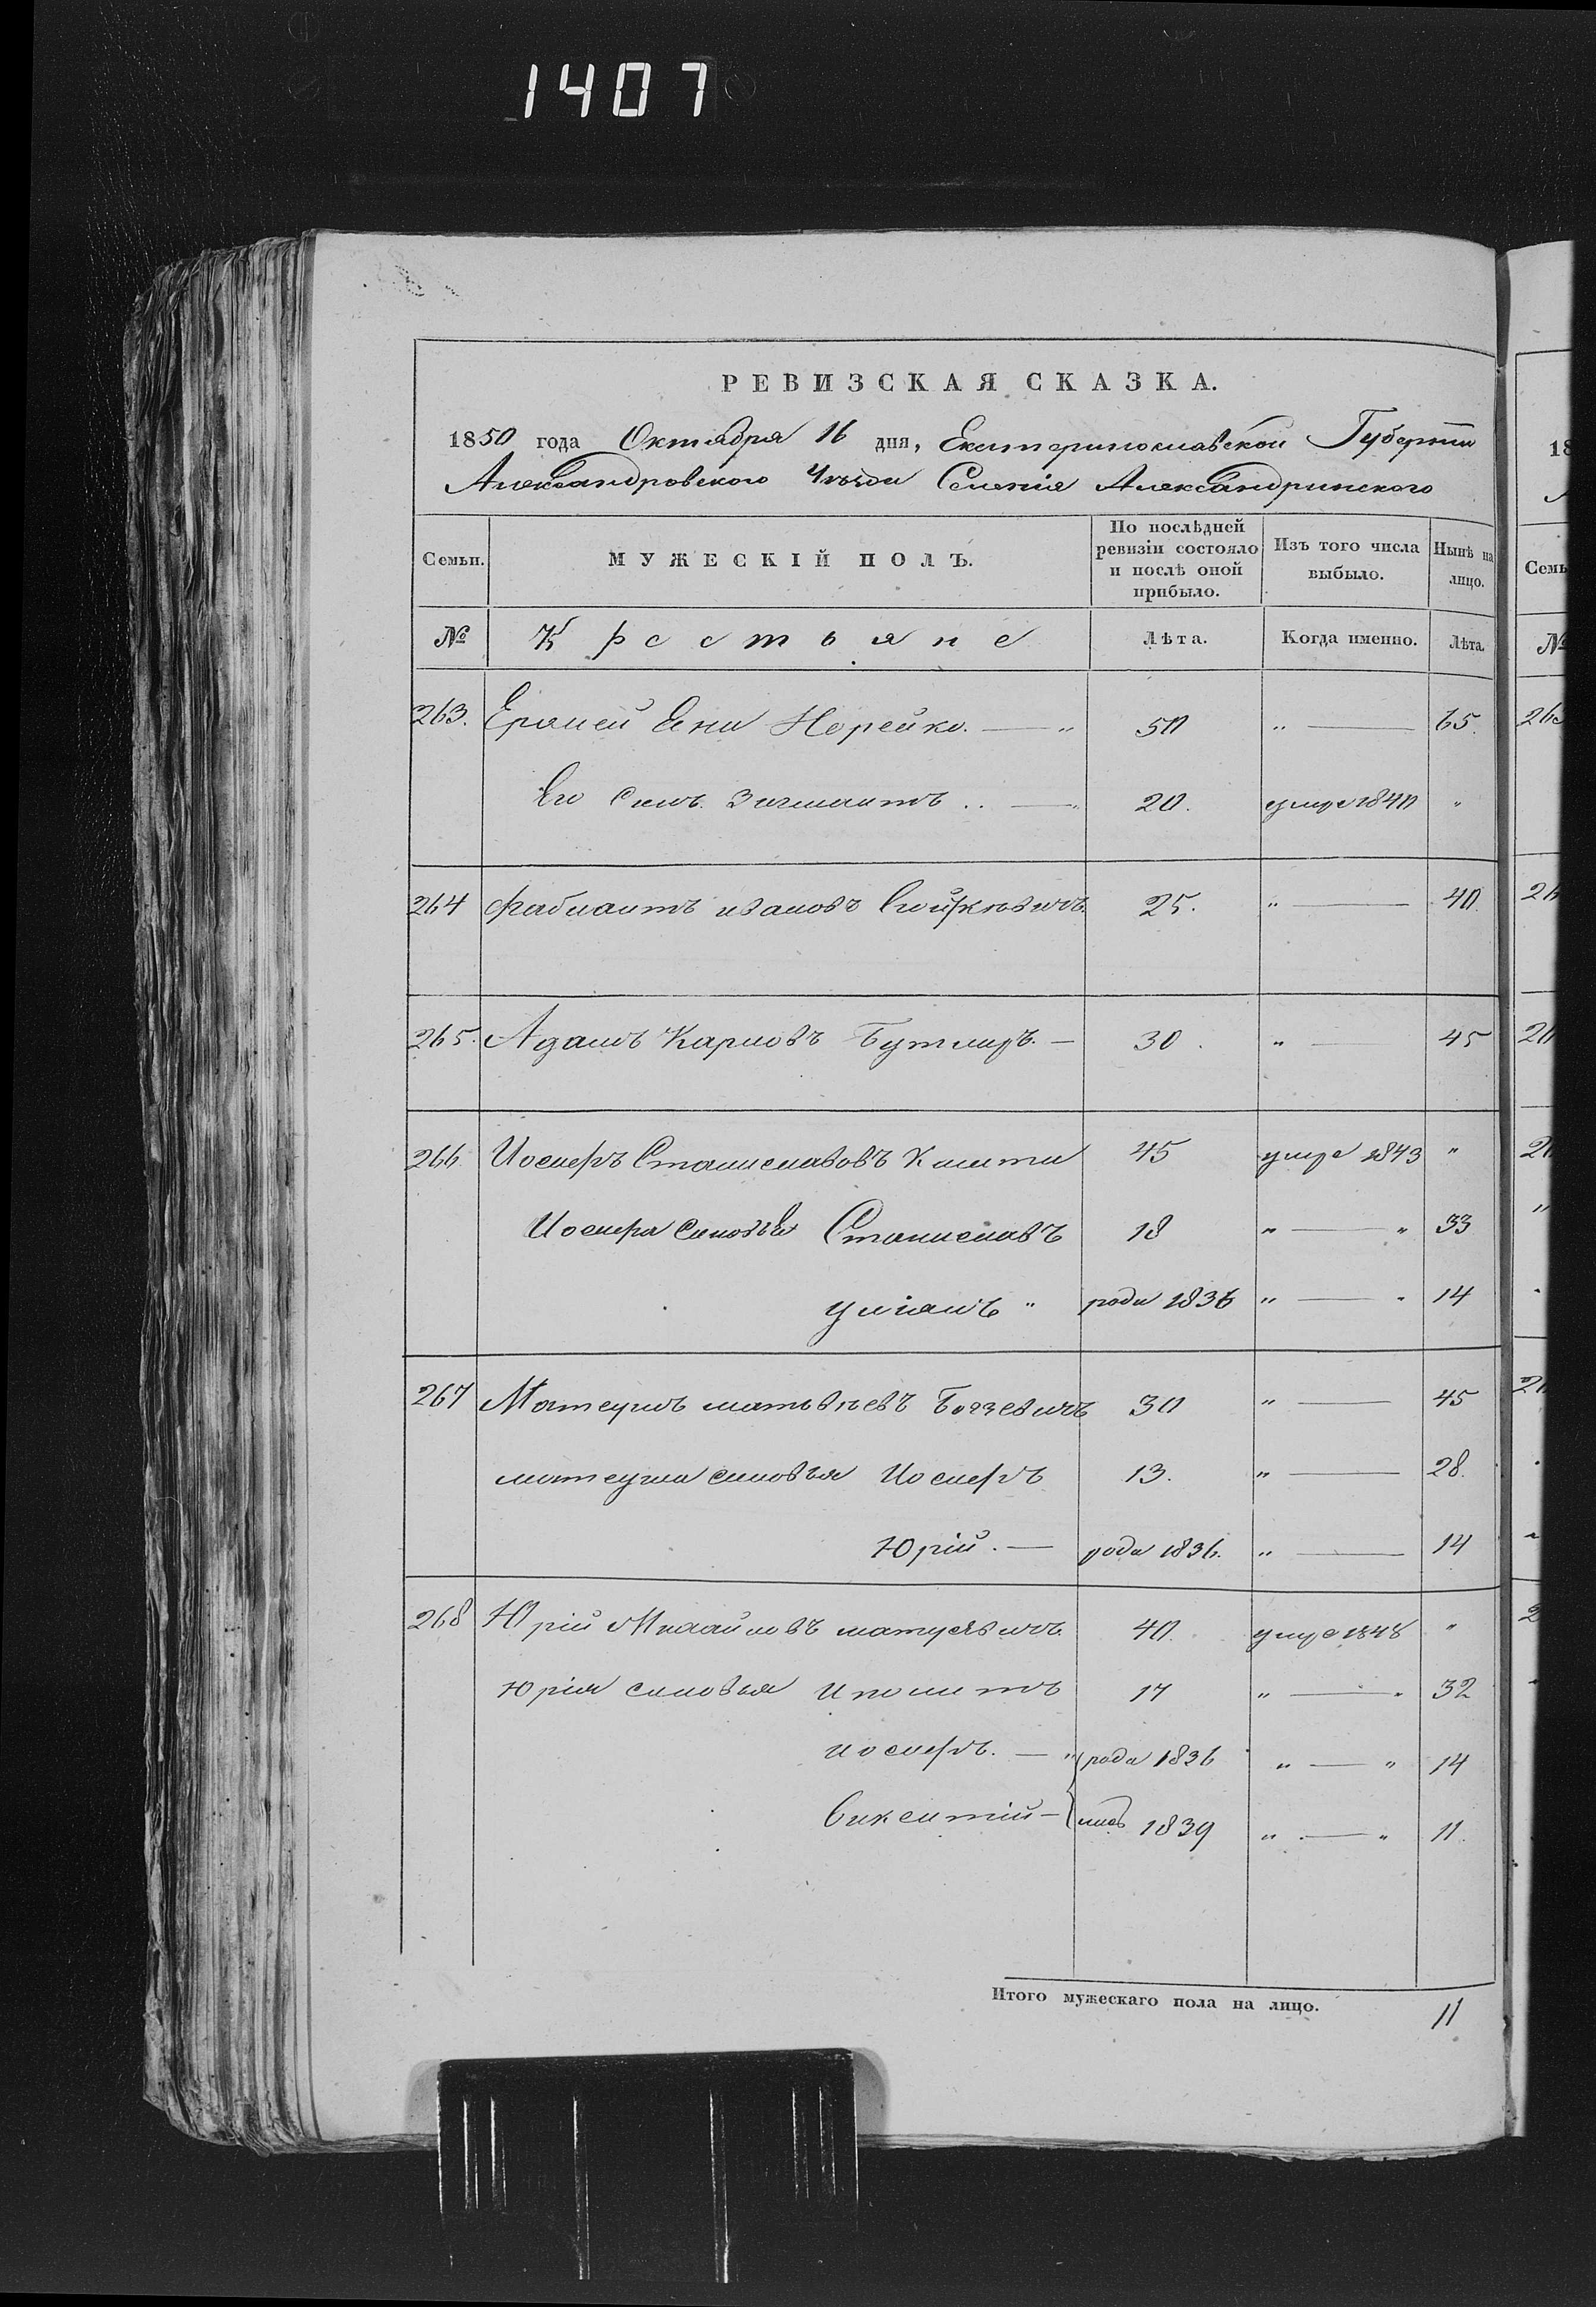 1407
РЕВИЗСКАЯ СКАЗКА.
1850 года Октября 16 дня, Екатеринославской Губернии
Александровского Уезда Селения Александринского
Семьи. МУЖЕСКІЙ ПОЛЪ. По послѣдней ревизіи состояло и послѣ оной прибыло. Изъ того числа выбыло. Нынѣ на лицо.
№ Крестьяне Лѣта. Когда именно. Лѣта.
263. Еремей Яна Норейко. — " 50 " — 65.
Его Сынъ Зигмантъ .. — " 20. умре 1840 "
264 Фабиантъ ивановъ 25. " — 40.
265. Адамъ Карловъ Бутлиръ. — 30. " — 45
266. Иосифъ Станиславовъ 45 умре 1843 "
Иосифа Сыновья Станиславъ 18 " — " 33
улианъ " рода 1836 " — " 14
267 Матеушъ матвѣевъ 30 " — 45
матеуша сыновья Иосифъ 13. " — 28.
Юрій. — рода 1836. " — 14
268 Юрій Михайловъ матусевичъ 40. умре 1848 "
Юрія сыновья Иполитъ 17 " — " 32
иосифъ. — " рода 1836 " — " 14
Викентій — 1839 " — " 11.
Итого мужескаго пола на лицо. 11